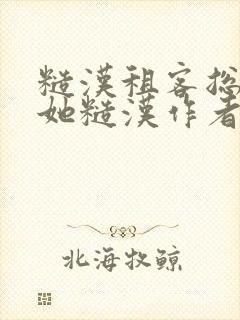 糙漢租客總
她糙漢作者
北海牧鯨